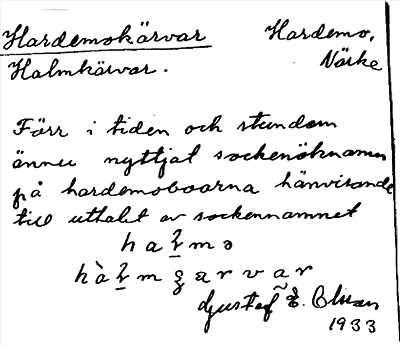 Hardemokärvar Hardemo,
Halmkärvar. Närke
Förr i tiden och stundom
ännu nyttjat sockenöknamn
på hardemoboarna hänvisande
till uttalet av sockennamnet
Gustaf E.
1933